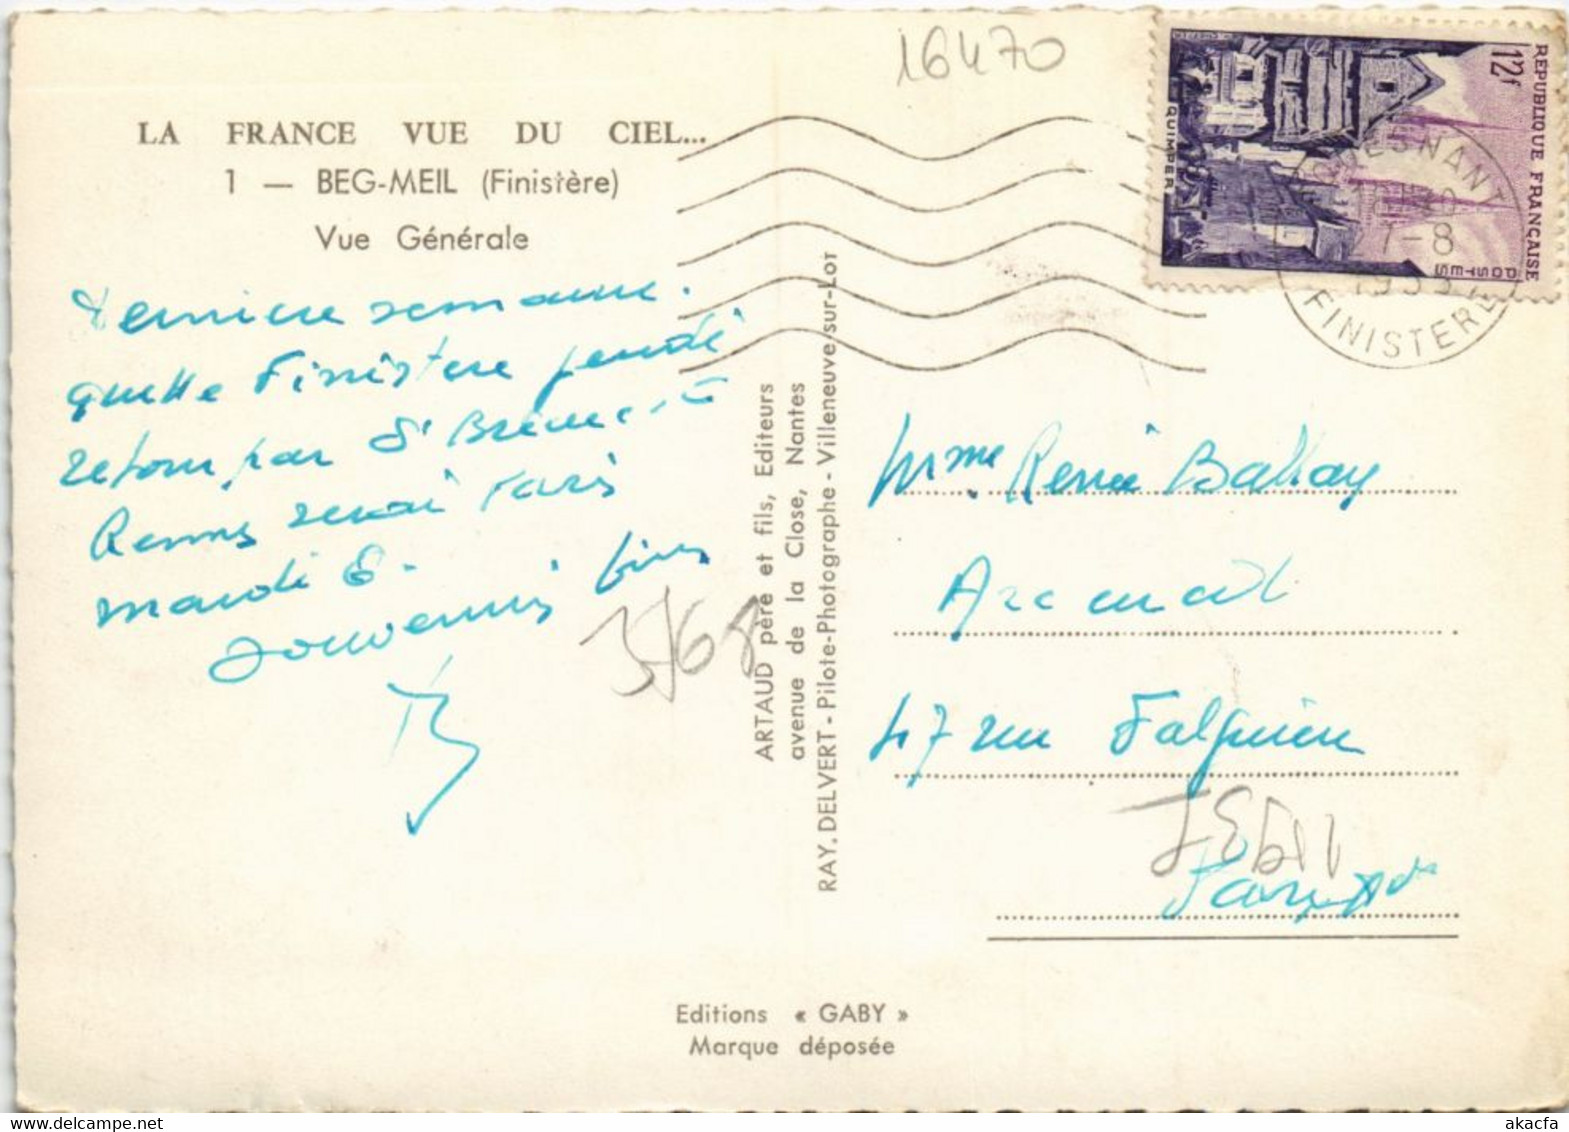 16470
LA FRANCE VUE DU CIEL...
1 — BEG-MEIL (Finistère)
Vue Générale
dernière semaine.
quitte Finistère jeudi
retour par St Brieuc et
Rennes serai Paris
mardi 6.
souvenirs
B
3/68
ARTAUD père et fils, Editeurs
avenue de la Close, Nantes
RAY. DELVERT - Pilote-Photographe - Villeneuve-sur-Lot
REPUBLIQUE FRANÇAISE
12f
POSTES
QUIMPER
FOUESNANT
27-8
FINISTERE
Mme Renée Ballay
47 rue Falguière
Paris
Editions « GABY »
Marque déposée
akacfa